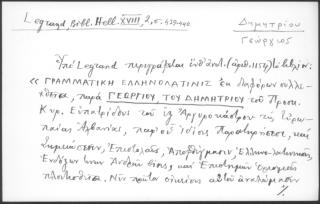 Legrand, Bibl. Hell. XVIII, 2, σ. 439-442
Δημητρίου
Γεώργιος
Ὑπό Legrand περιγράφεται (ἀριθ. 1157) τό βιβλίον:
« ΓΡΑΜΜΑΤΙΚΗ ΕΛΛΗΝΟΛΑΤΙΝΙΣ ἐκ διαφόρων συλλε-
χθεῖσα, παρά ΓΕΩΡΓΙΟΥ ΤΟΥ ΔΗΜΗΤΡΙΟΥ τοῦ Προσκ.
Κυρ. Εὐπατρίδου τοῦ ἐξ Ἀργυροκάστρου τῆς Εὐρω-
παίας Ἀλβανίας, παρ' οὗ ἰδίοις Παρατηρήσεσι, καί
Σημειώσεσιν, Ἐπιστολαῖς, Ἀποφθέγμασιν, Ἑλληνο-λατινικοῖς,
Ἐνδόξων τινων Ἀνδρῶν βίοις, καί Ἐπιστημῶν
πλουτισθεῖσα. Νῦν πρῶτον οἰκείοις αὐτοῦ ἀναλώμασιν
./.